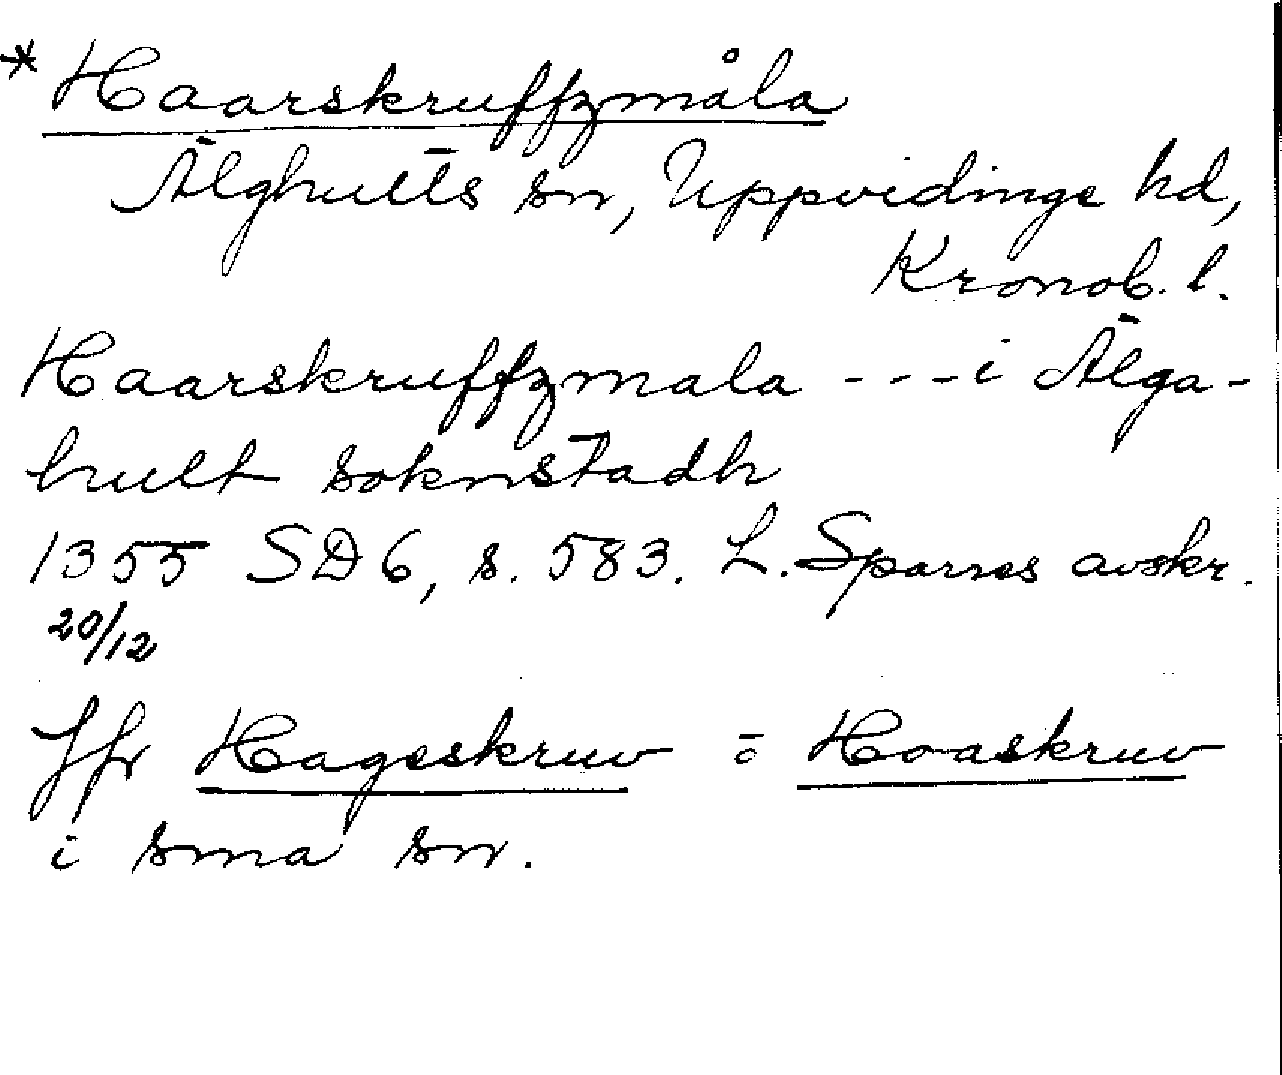 * Haarskruffzmåla
Älghults sn, Uppvidinge hd,
Kronob. l.
Haarskruffzmala - - - i Älga-
hult soknstadh
1355 SD 6, s. 583. L. Sparres avskr.
20/12
Jfr Hageskruv o Hoaskruv
i sma sn.